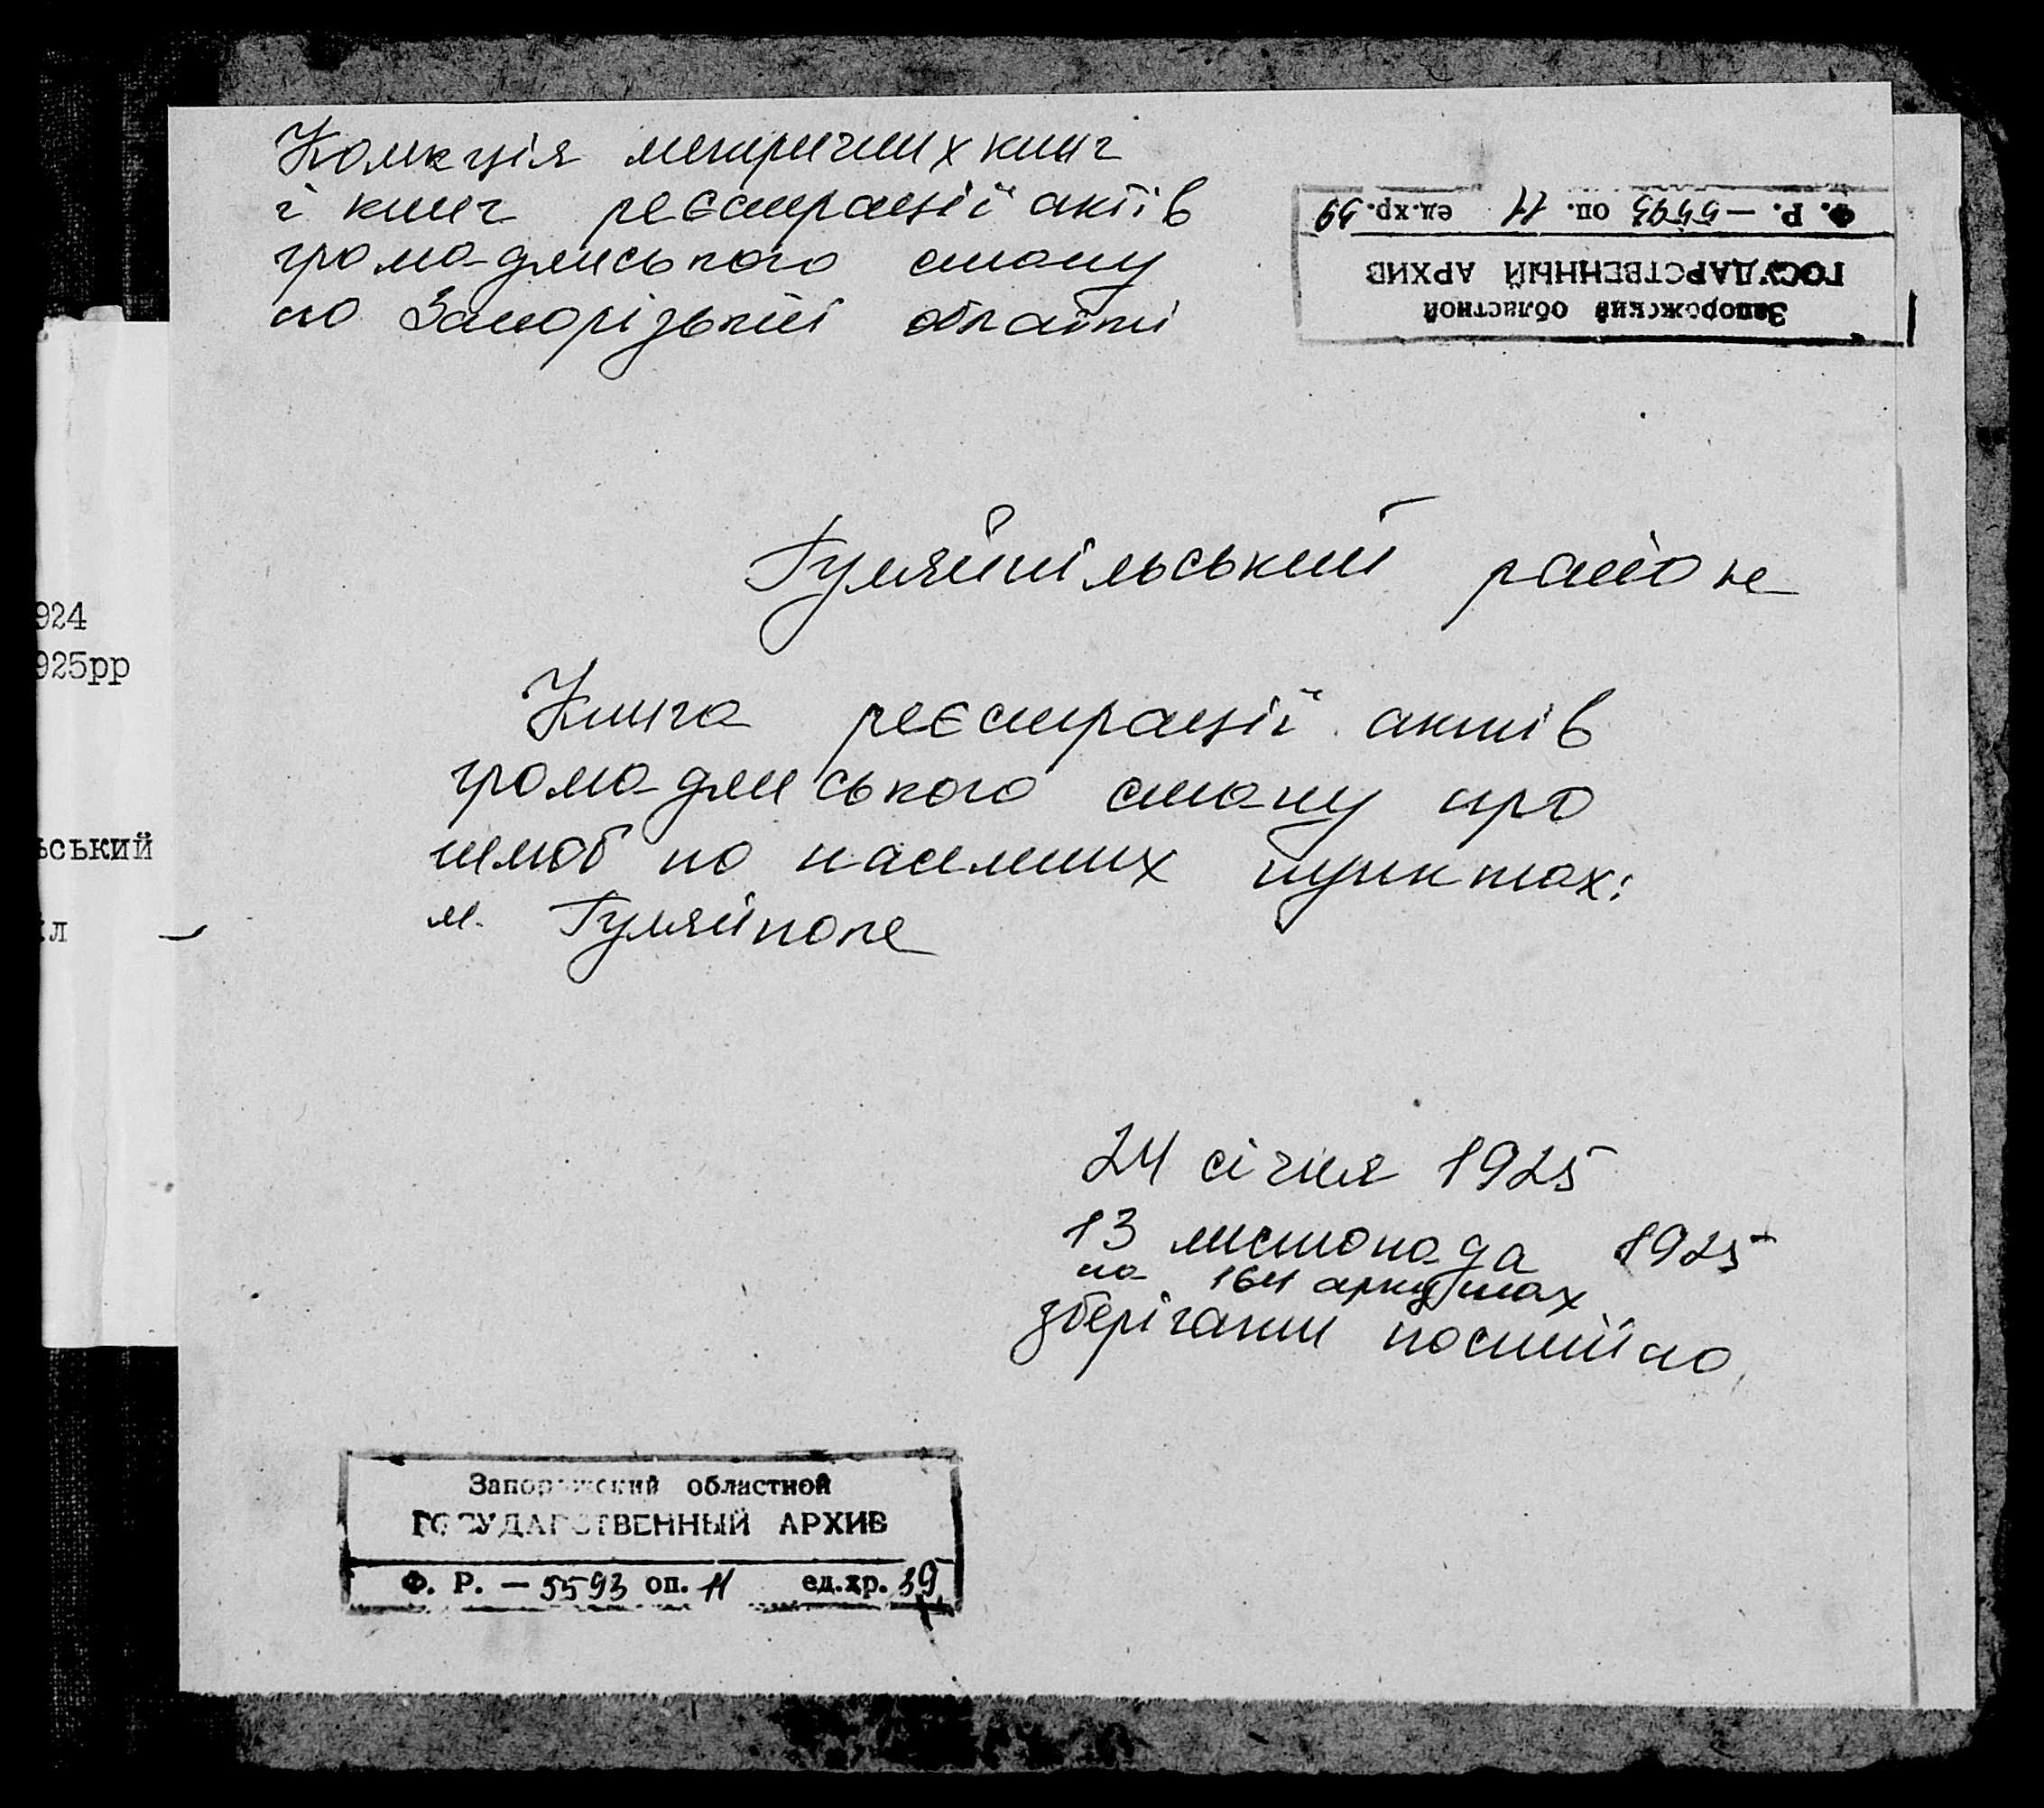 Колекція метричних книг
і книг реєстрації актів
громадянського стану
по Запорізькій області
Ф. Р. — 5593 оп. 11 ед.хр. 39
ГОСУДАРСТВЕННЫЙ АРХИВ
Запорожский областной
Гуляйпільський район
Книга реєстрації актів
громадянського стану про
шлюб по населених пунктах:
м. Гуляйполе
924
925рр
ьський
л
24 січня 1925
13 листопада 1925
на 164 аркушах
зберігати постійно
Запорожский областной
ГОСУДАРСТВЕННЫЙ АРХИВ
Ф. Р. — 5593 оп. 11 ед.хр. 39